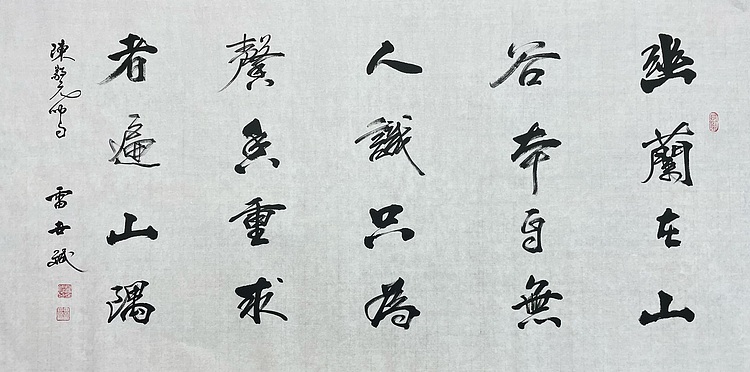 幽蘭在山
谷本自無
人識只為
馨香重求
者遍山隅
陳毅元帥句 雷世斌